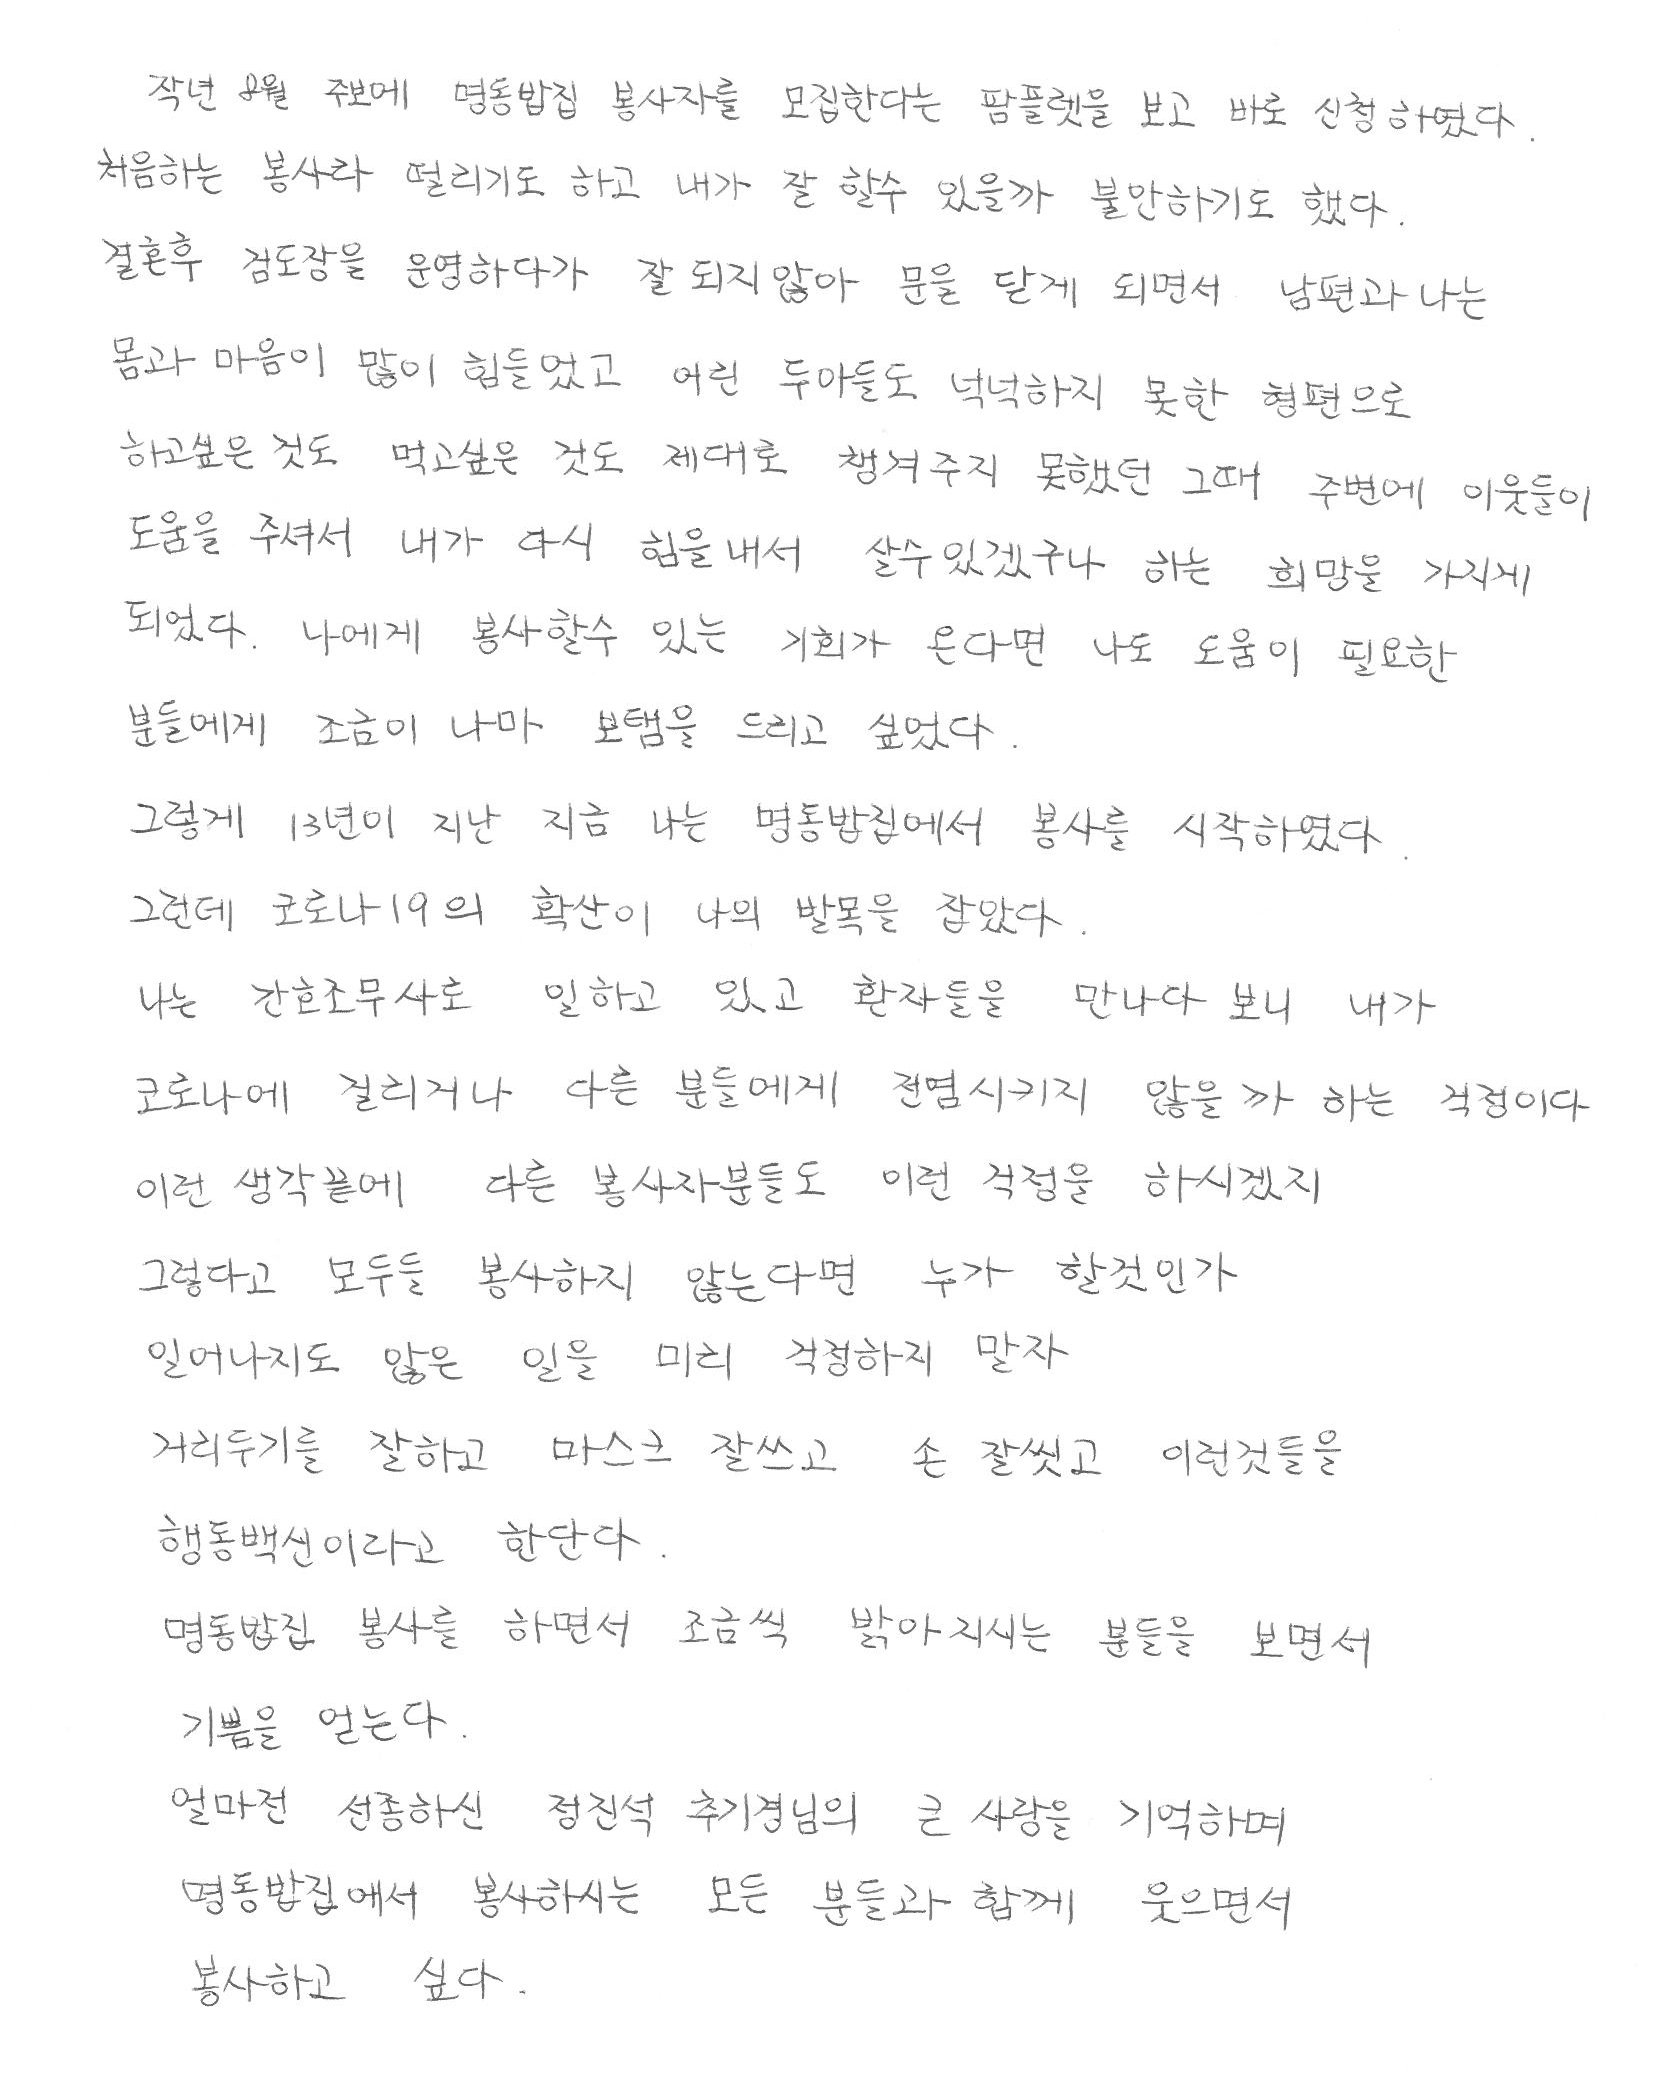 작년 8월 주보에 명동밥집 봉사자를 모집한다는 팜플렛을 보고 바로 신청하였다.
처음하는 봉사라 떨리기도 하고 내가 잘 할수 있을까 불안하기도 했다.
결혼후 검도장을 운영하다가 잘 되지않아 문을 닫게 되면서 남편과 나는
몸과 마음이 많이 힘들었고 어린 두아들도 넉넉하지 못한 형편으로
하고싶은 것도 먹고싶은 것도 제대로 챙겨주지 못했던 그때 주변에 이웃들이
도움을 주셔서 내가 다시 힘을내서 살수있겠구나 하는 희망을 가지게
되었다. 나에게 봉사할수 있는 기회가 온다면 나도 도움이 필요한
분들에게 조금이 나마 보탬을 드리고 싶었다.
그렇게 13년이 지난 지금 나는 명동밥집에서 봉사를 시작하였다.
그런데 코로나19의 확산이 나의 발목을 잡았다.
나는 간호조무사로 일하고 있고 환자들을 만나다 보니 내가
코로나에 걸리거나 다른 분들에게 전염시키지 않을까 하는 걱정이다
이런 생각끝에 다른 봉사자분들도 이런 걱정을 하시겠지
그렇다고 모두들 봉사하지 않는다면 누가 할것인가
일어나지도 않은 일을 미리 걱정하지 말자
거리두기를 잘하고 마스크 잘쓰고 손 잘씻고 이런것들을
행동백신이라고 한단다.
명동밥집 봉사를 하면서 조금씩 밝아지시는 분들을 보면서
기쁨을 얻는다.
얼마전 선종하신 정진석 추기경님의 큰 사랑을 기억하며
명동밥집에서 봉사하시는 모든 분들과 함께 웃으면서
봉사하고 싶다.